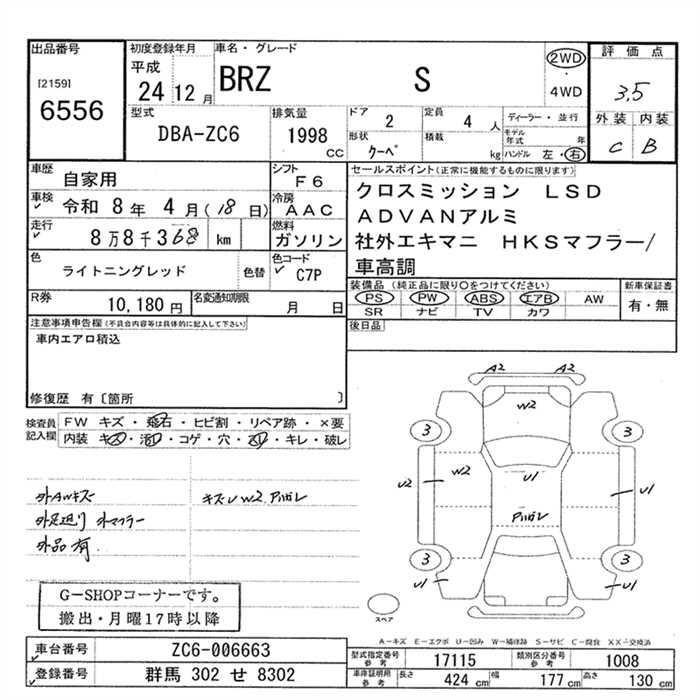 出品番号
[2159]
6556
初度登録年月
平成
24 12 月
車名・グレード
BRZ S
2WD
・
4WD
評価点
3.5
外装 内装
C B
型式
DBA-ZC6
排気量
1998 CC
ドア
2
定員
4 人
形状
クーペ
積載
kg
ディーラー・並行
モデル年式 年
ハンドル 左・右
車歴
自家用
シフト
F6
車検
令和 8年 4月(18日)
冷房
AAC
走行
8万8千368 km
燃料
ガソリン
色
ライトニングレッド
色替
色コード
C7P
R券
10,180 円
名変通知期限
月 日
セールスポイント(正常に機能するものに限ります)
クロスミッション LSD
ADVANアルミ
社外エキマニ HKSマフラー/
車高調
装備品(純正品に限り○をつけてください)
PS PW ABS エアB AW
SR ナビ TV カワ
新車保証書
有・無
後日品
注意事項申告欄(不具合内容等は具体的に記入して下さい)
車内エアロ積込
修復歴 有〔箇所 〕
検査員
記入欄
FW キズ・飛石・ヒビ割・リペア跡・×要
内装 キズ・汚・コゲ・穴・・キレ・破レ
外AWキズ
外足廻り 外マフラー
外品有
キズ U W2 Pハガレ
G-SHOPコーナーです。
搬出・月曜17時以降
A2 A2
W2
3 3
U2
W2
U1
U1
Pハガレ
3 3
U1 U1
スペア
A-キズ E-エクボ U-凹み W-補修跡 S-サビ C-腐食 XX-交換済
車台番号
ZC6-006663
登録番号
群馬 302 せ 8302
型式指定番号
参考
17115
類別区分番号
参考
1008
車庫証明用
参考
長さ 424 cm
幅 177 cm
高さ 130 cm